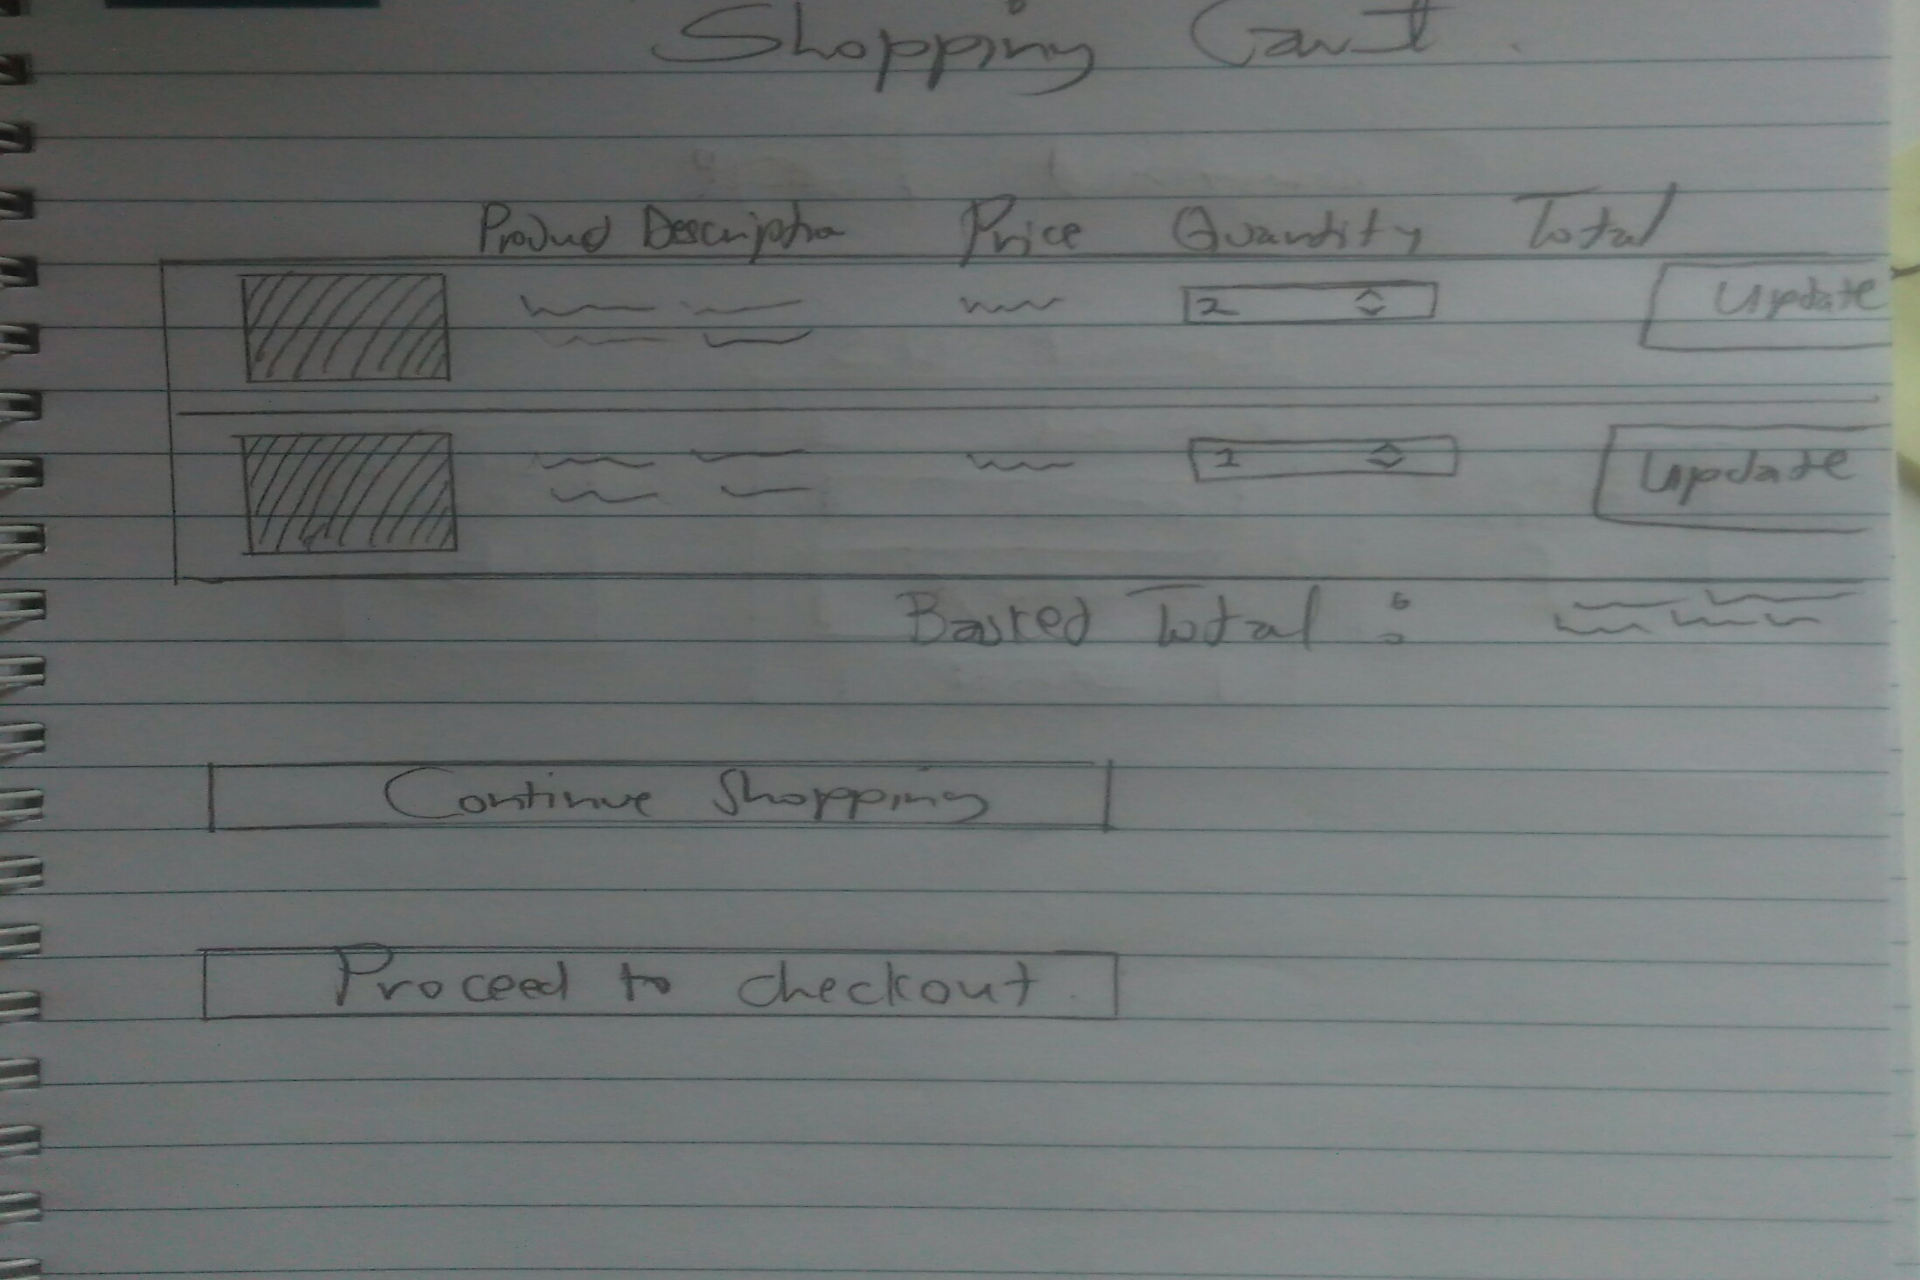 Shopping Cart.
Product Description Price Quantity Total
2 Update
1 Update
Basked Total :
Continue Shopping
Proceed to checkout.